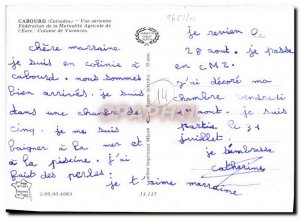 CABOURG (Calvados) - Vue aérienne
Fédération de la Mutualité Agricole de
l'Eure - Colonie de Vacances.
chère marraine
je suis en colonie à
cabourg. nous sommes
bien arrivés. je suis
dans une chambre de
cinq. je me suis
baigner à la mer et
à la piscine. j'ai
fait des perles.
je t'aime marraine
je reviens le
28 aout. je passe
en CM2.
j'ai décoré ma
chambre vendredi
aout. je suis
partie le 31
juillet.
je t'embrasse
catherine
14.117